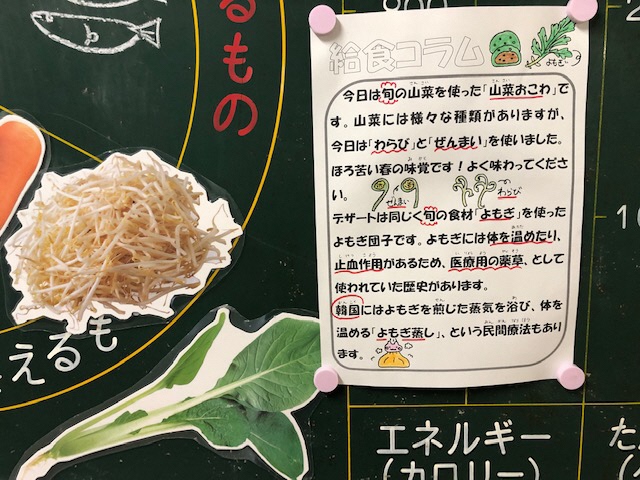 給食コラム
よもぎ
今日は旬の山菜を使った「山菜おこわ」で
す。山菜には様々な種類がありますが、
今日は「わらび」と「ぜんまい」を使いました。
ほろ苦い春の味覚です！よく味わってくださ
い。
ぜんまい
わらび
デザートは同じく旬の食材「よもぎ」を使った
よもぎ団子です。よもぎには体を温めたり、
止血作用があるため、医療用の薬草、として
使われていた歴史があります。
韓国にはよもぎを煎じた蒸気を浴び、体を
温める「よもぎ蒸し」、という民間療法もあり
ます。
るもの
えるも
エネルギー
(カロリー)